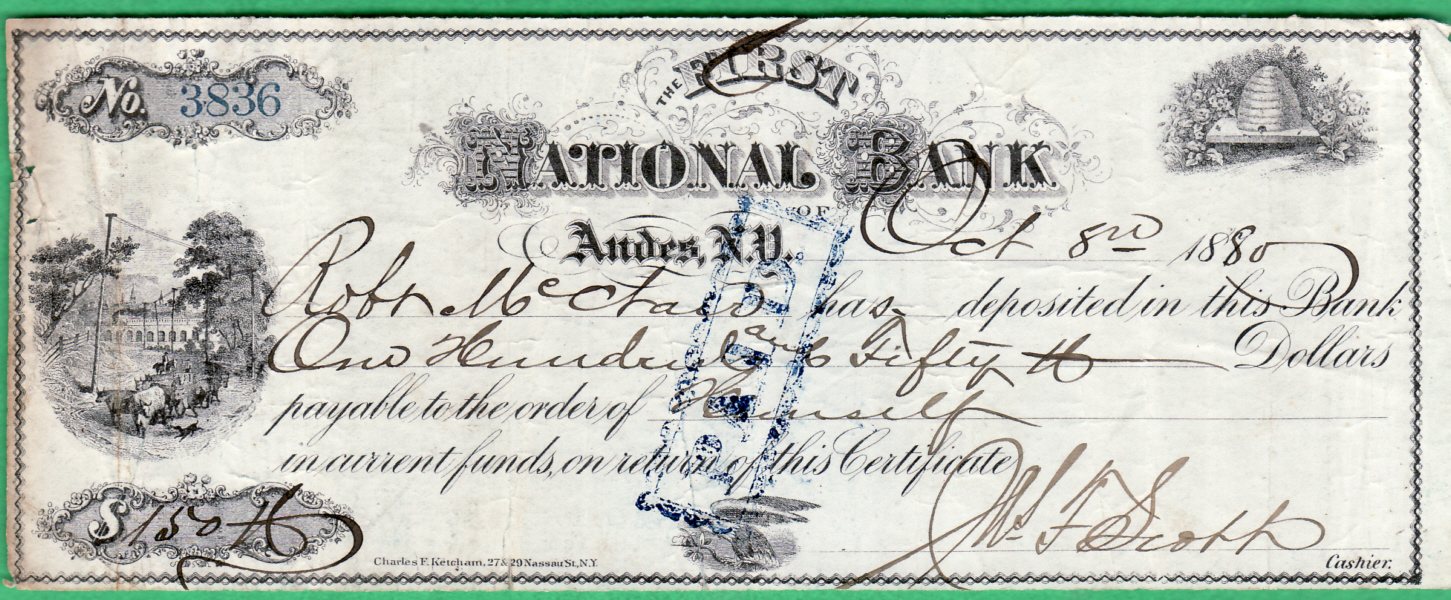 No. 3836
THE FIRST
NATIONAL BANK
OF
Andes, N.Y.
Oct 8th 1880
Robt Mc has deposited in this Bank
One Hundred and Fifty Dollars
payable to the order of Himself
in current funds, on return of this Certificate
PAID
$ 150
Scott
Charles F. Ketcham, 27 & 29 Nassau St., N.Y.
Cashier.